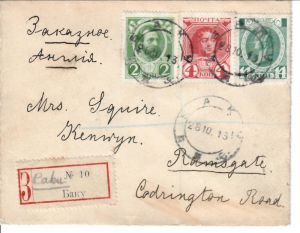 Заказное.
Англiя.
ПОЧТА
2 4 14
БАКУ
28 10. 13
Mrs. Squire.
Kenwyn.
Ramsgate
Codrington Road.
З
№ 10
Баку